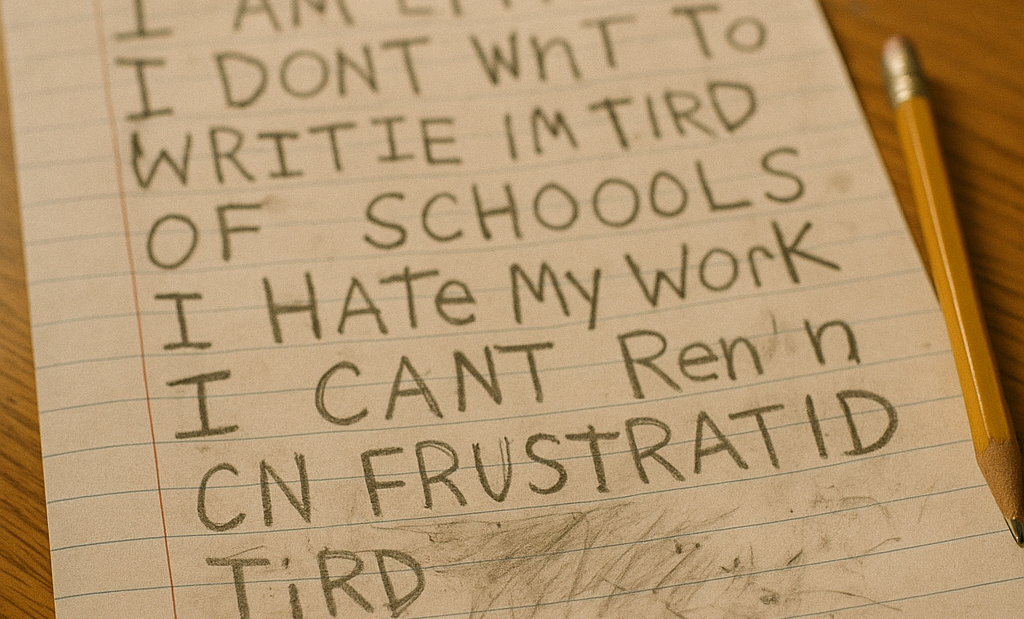 I AM
I DONT WnT To
WRITIE IM TIRD
OF SCHOOOLS
I HATe My WorK
I CANT Ren'n
CN FRUSTRATID
TiRD